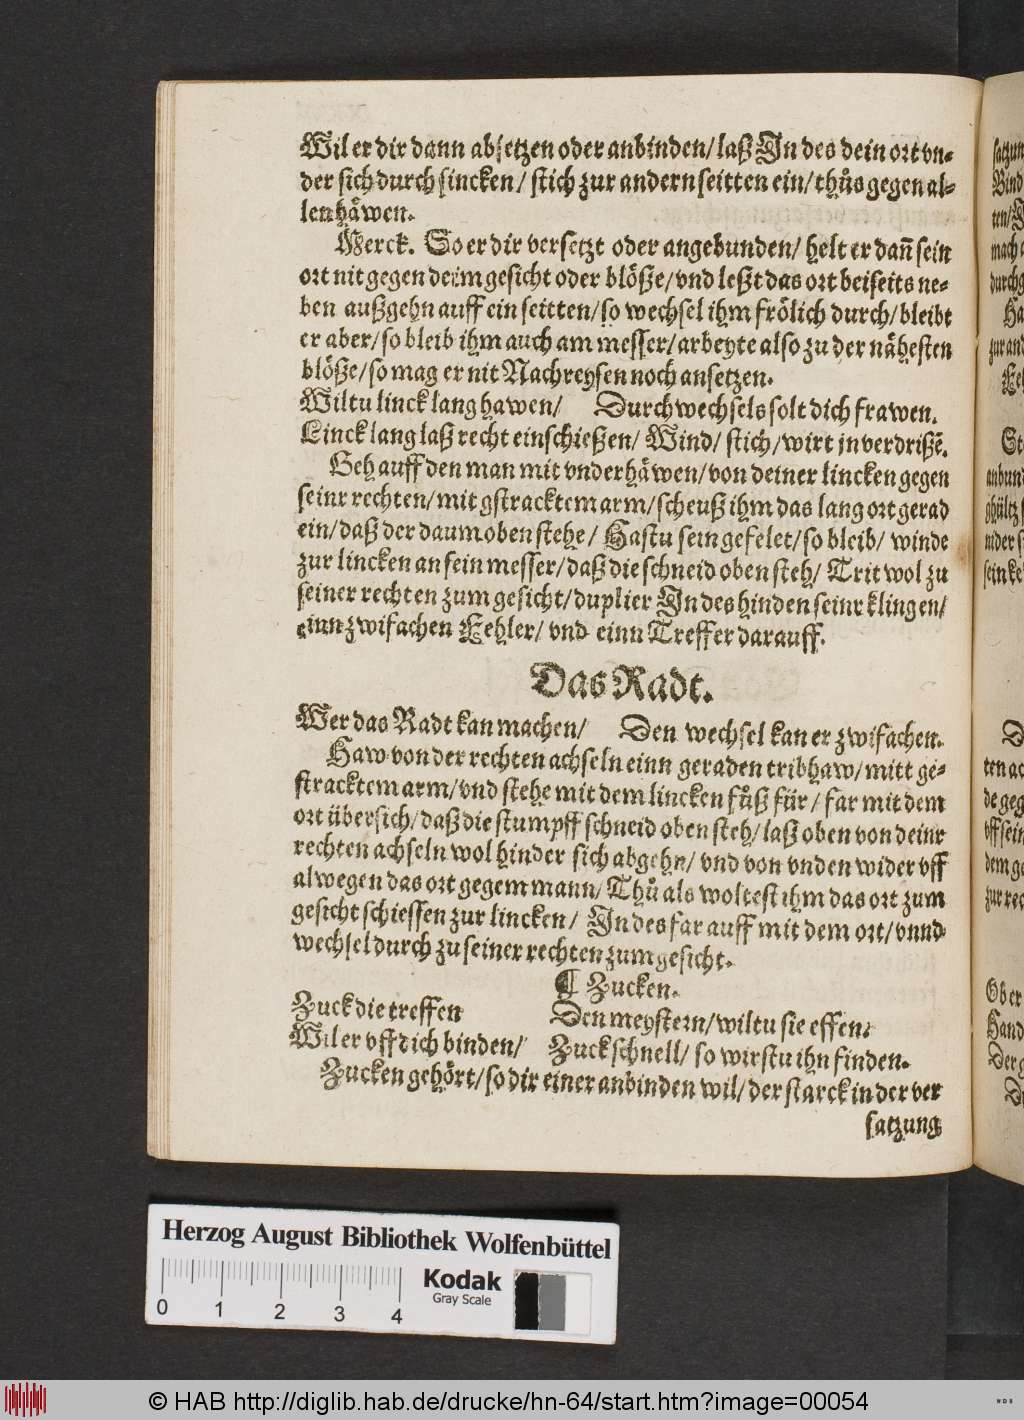 Wil er dir dann absetzen oder anbinden/ laß In des dein ort vn-
der sich durch sincken/ stich zur andern seitten ein/ thůs gegen al-
len häwen.
Merck. So er dir versetzt oder angebunden/ helt er dañ sein
ort nit gegen deim gesicht oder blöße/ vnd leßt das ort beiseits ne-
ben außgehn auff ein seitten/ so wechsel ihm frölich durch/ bleibt
er aber/ so bleib ihm auch am messer/ arbeyte also zu der nähesten
blöße/ so mag er nit Nachreysen noch ansetzen.
Wiltu linck lang hawen/ Durchwechsels solt dich frawen.
Linck lang laß recht einschießen/ Wind/ stich/ wirt jn verdrißẽ.
Geh auff den man mit vnderhäwen/ von deiner lincken gegen
seinr rechten/ mit gstracktem arm/ scheuß ihm das lang ort gerad
ein/ daß der daum oben stehe/ Hastu sein gefelet/ so bleib/ winde
zur lincken an sein messer/ daß die schneid oben steh/ Trit wol zu
seiner rechten zum gesicht/ duplier In des hinden seinr klingen/
einn zwifachen Fehler/ vnd einn Treffer darauff.
Das Radt.
Wer das Radt kan machen/ Den wechsel kan er zwifachen.
Haw von der rechten achseln einn geraden tribhaw/ mitt ge-
stracktem arm/ vnd stehe mit dem lincken fůß für/ far mit dem
ort übersich/ daß die stumpff schneid oben steh/ laß oben von deinr
rechten achseln wol hinder sich abgehn/ vnd von vnden wider vff
alwegen das ort gegem mann/ Thů als woltest ihm das ort zum
gesicht schiessen zur lincken/ In des far auff mit dem ort/ vnnd
wechsel durch zu seiner rechten zum gesicht.
¶ Zucken.
Zuck die treffen Den meystern/ wiltu sie effen.
Wil er vff dich binden/ Zuck schnell/ so wirstu ihn finden.
Zucken gehört/ so dir einer anbinden wil/ der starck in der ver
satzung
Herzog August Bibliothek Wolfenbüttel
Kodak
Gray Scale
0 1 2 3 4
© HAB http://diglib.hab.de/drucke/hn-64/start.htm?image=00054